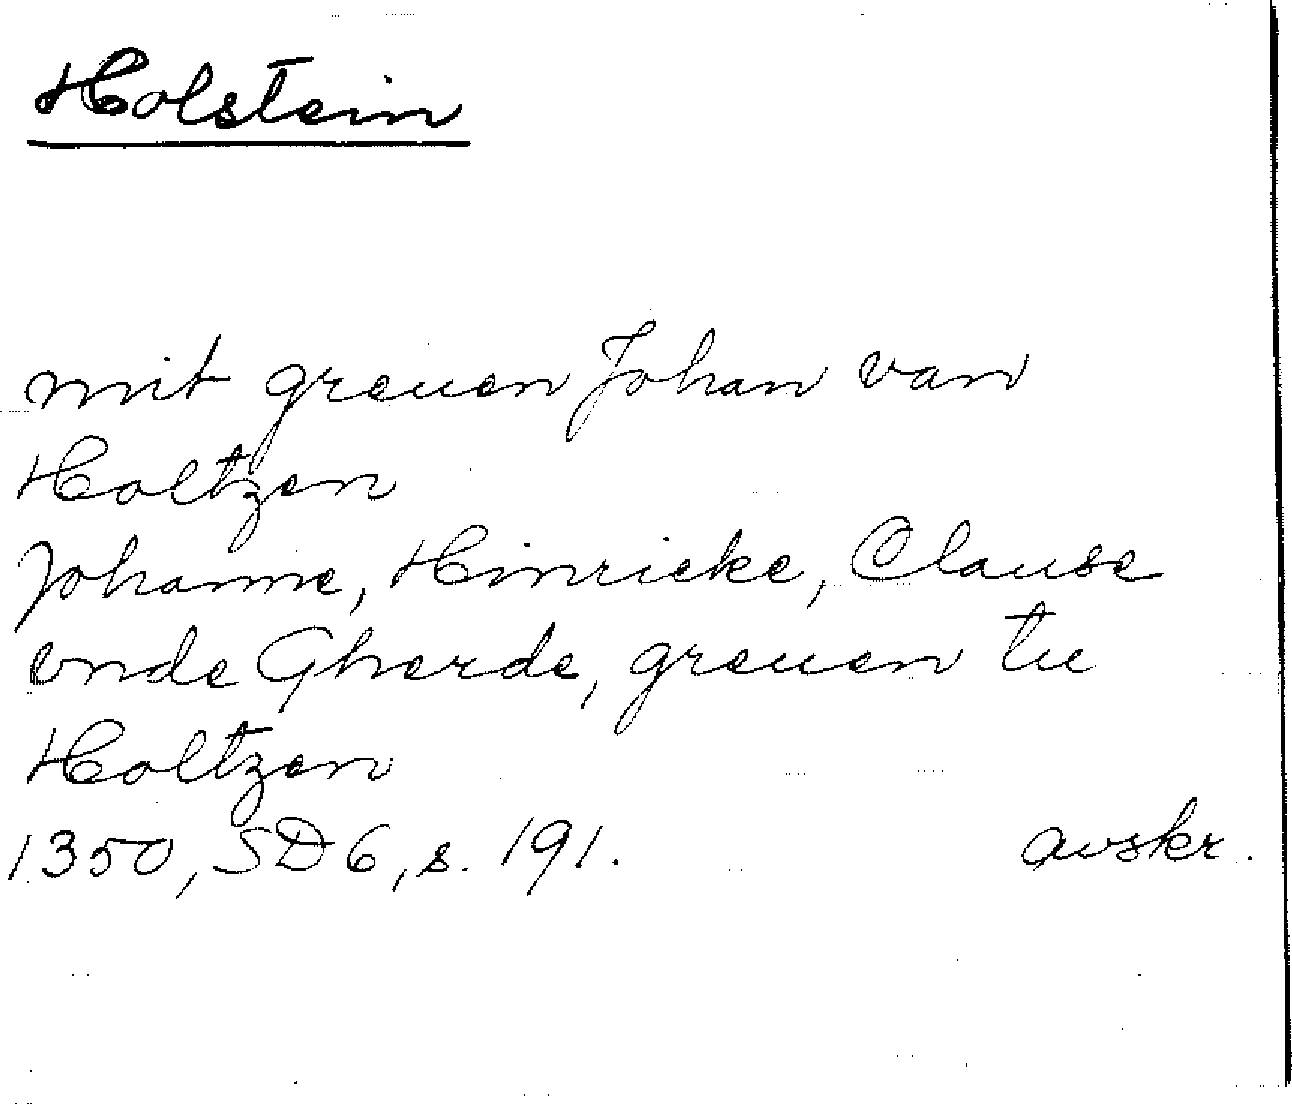 Holstein
mit greuen Johan van
Holtzen
Johanne, Hinrieke, Clause
vnde Gherde, greuen tu
Holtzen
1350, SD 6, s. 191. avskr.